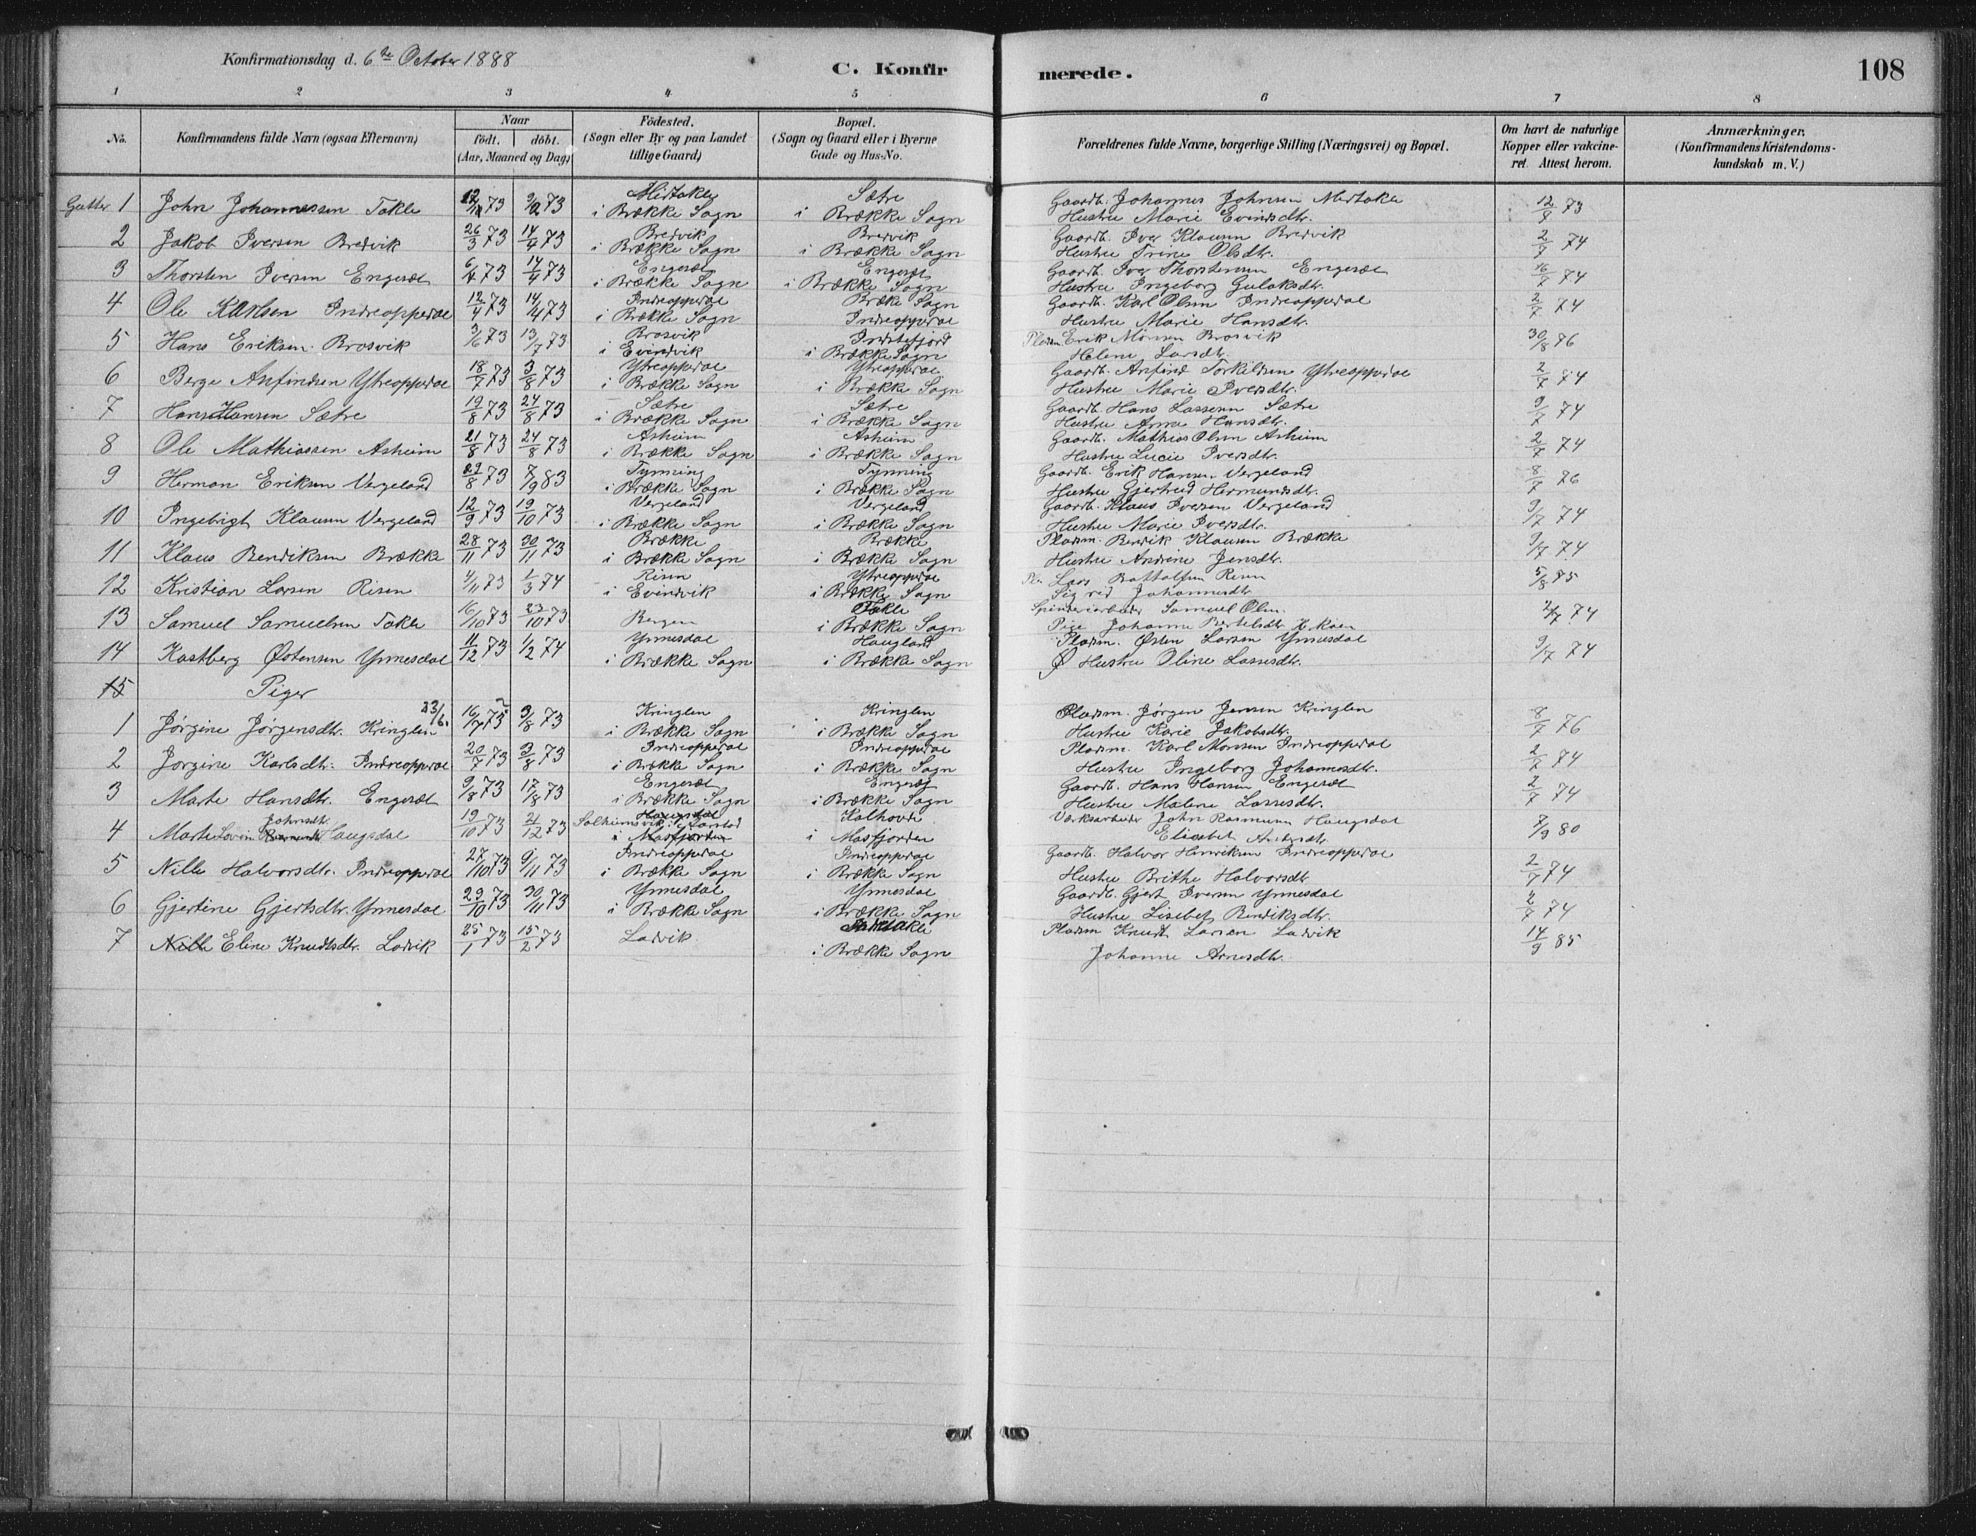 Konfirmationsdag d. 6te October 1888
C. Konfirmerede.
108
1 2 3 4 5 6 7 8
No. Konfirmandens fulde Navn (ogsaa Efternavn) Naar födt. döbt. (Aar, Maaned og Dag) Födested. (Sogn eller By og paa Landet tillige Gaard) Bopæl. (Sogn og Gaard eller i Byerne Gade og Hus-No. Forældrenes fulde Navne, borgerlige Stilling (Næringsvei) og Bopæl. Om havt de naturlige Kopper eller vakcineret. Attest herom. Anmærkninger. (Konfirmandens Kristendomskundskab m. V.)
Gutter 1 John Johannessen Takle 73 73 Midtakle i Brække Sogn Sætre i Brække Sogn Gaardb. Johannes Johnsen Midtakle Hustru Marie Evindsdtr. 12/8 73
2 Jakob Iversen Bredvik 26/3 73 14/4 73 Bredvik i Brække Sogn Bredvik i Brække Sogn Gaardb. Iver Klausen Bredvik Hustru Trine Olsdtr. 2/7 74
3 Thorsten Iversen Engesæt 6/4 73 14/4 73 Engesæt i Brække Sogn Engesæt i Brække Sogn Gaardb. Iver Thorstensen Engesæt Hustru Ingeborg Gulaksdtr. 16/7 74
4 Ole Karlsen Indreoppedal 12/4 73 14/4 73 Indreoppedal i Brække Sogn Brække Sogn Indreoppedal Gaardb. Karl Olsen Indreoppedal Hustru Marie Hansdtr. 2/7 74
5 Hans Eriksen Brosvik 3/6 73 13/7 73 Brosvik i Evindvik Indstefjord i Brække Sogn Pladsm Erik Mönsen Brosvik Helene Larsdtr. 30/8 76
6 Berge Anfindsen Ytreoppedal 18/7 73 3/8 73 Ytreoppedal i Brække Sogn Ytreoppedal i Brække Sogn Gaardb. Anfind Torkildsen Ytreoppedal Hustru Marie Iversdtr. 2/7 74
7 Hans Hansen Sætre 19/8 73 24/8 73 Sætre i Brække Sogn Sætre i Brække Sogn Gaardb. Hans Lassesen Sætre Hustru Anna Hansdtr. 9/7 74
8 Ole Mathiassen Asheim 21/8 73 24/8 73 Asheim i Brække Sogn Asheim i Brække Sogn Gaardb. Mathias Olsen Asheim Hustru Lucie Iversdtr. 2/7 74
9 Herman Eriksen Vergeland 29/8 73 7/9 83 Tynning i Brække Sogn Tynning i Brække Sogn Gaardb. Erik Hansen Vergeland Hustru Gjertrud Hermundsdtr. 8/7 76
10 Ingebrigt Klausen Vergeland 12/9 73 19/10 73 Vergeland i Brække Sogn Vergeland i Brække Sogn Gaardb. Klaus Iversen Vergeland Hustru Marie Iversdtr. 9/7 74
11 Klaus Bendiksen Brække 28/11 73 30/11 73 Brække i Brække Sogn Brække i Brække Sogn Pladsm. Bendik Klausen Brække Hustru Andrine Jensdtr. 9/7 74
12 Kristian Larsen Risen 4/11 73 1/3 74 Risen i Evindvik Ytreoppedal i Brække Sogn Pl. Lars Bottolfsen Risen Sigrid Johannesdtr 5/8 85
13 Samuel Samuelsen Takle 16/10 73 23/10 73 Bergen Takle i Brække Sogn Spinderiarbeider Samuel Olsen. Pige Johanne Bertelsdtr. 2/7 74
14 Kastberg Östensen Ynnesdal 11/12 73 1/2 74 Ynnesdal i Brække Sogn Haugland i Brække Sogn Pladsm. Östen Larsen Ynnesdal Hustru Oline Lassesdtr. 9/7 74
15 Piger
1 Jørgine Jørgensdtr. Kringlen 23/6 16/7 73 3/8 73 Kringlen i Brække Sogn Kringlen i Brække Sogn Pladsm. Jørgen Jensen Kringlen Hustru Karie Jakobsdtr. 8/7 76
2 Jørgine Karlsdtr. Indreoppedal 20/7 73 3/8 73 Indreoppedal i Brække Sogn Indreoppedal i Brække Sogn Pladsm. Karl Monsen Indreoppedal Hustru Ingeborg Johannesdtr. 2/7 74
3 Marte Hansdtr. Engesæt 9/8 73 17/8 73 Engesæt i Brække Sogn Engesæt i Brække Sogn Gaardb. Hans Hansen Engesæt Hustru Malene Lassesdtr. 2/7 74
4 Marte Johnsdtr Haugsdal 19/10 73 21/12 73 Solheimsvik Haugsdal i Masfjorden i Masfjorden Værksarbeider John Rasmusen Haugsdal Elisabet Andersdtr 7/9 80
5 Nille Halvorsdtr. Indreoppedal 27/10 73 9/11 73 Indreoppedal i Brække Sogn Indreoppedal i Brække Sogn Gaardb. Halvor Henriksen Indreoppedal Hustru Brithe Halvorsdtr 2/7 74
6 Gjertine Gjertsdtr. Ynnesdal 29/10 73 30/11 73 Ynnesdal i Brække Sogn Ynnesdal i Brække Sogn Gaardb. Gjert Iversen Ynnesdal Hustru Lisebet Bendiksdtr. 2/7 74
7 Nille Eline Knudtsdtr. Ladvik 25/1 73 15/2 73 Ladvik i Brække Sogn Pladsm Knudt Larsen Ladvik Johanne Arnesdtr. 14/9 85